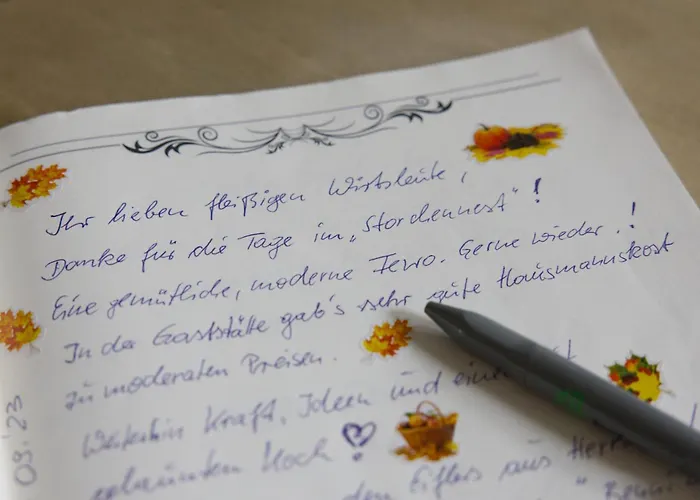 Ihr lieben fleißigen Wirtsleute,
Danke für die Tage im „Storchennest"!
Eine gemütliche, moderne Fewo. Gerne wieder.!
In der Gaststätte gab's sehr gute Hausmannskost
zu moderaten Preisen.
Weiterhin Kraft, Ideen und einen
Koch!
den Eiflers aus
09.'23